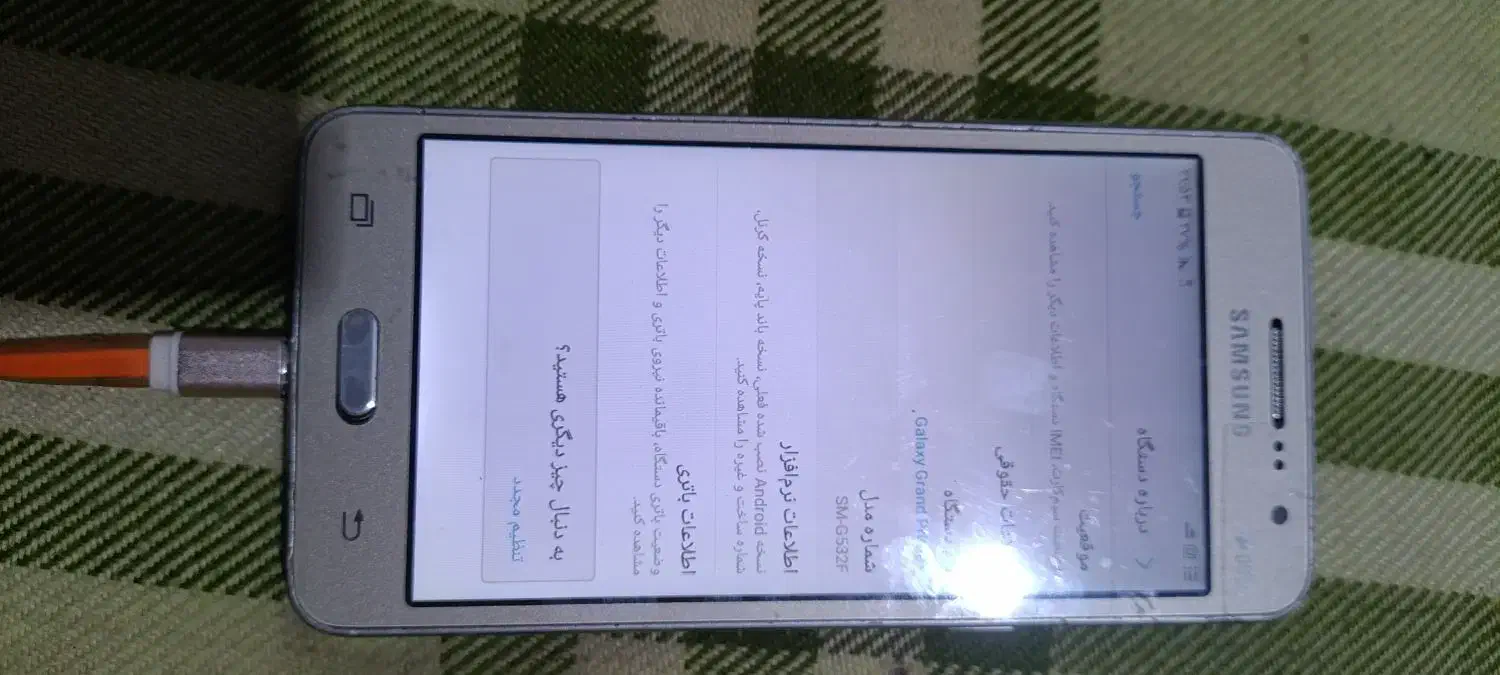 SAMSUNG
جستجو
درباره دستگاه
موقعیت
IMEI دستگاه و اطلاعات دیگر را مشاهده کنید.
حقوقی
دستگاه
Galaxy Grand
شماره مدل
SM-G532F
اطلاعات نرم‌افزار
نسخه Android نصب شده فعلی، نسخه باند پایه، نسخه کرنل،
شماره ساخت و غیره را مشاهده کنید.
اطلاعات باتری
وضعیت باتری دستگاه، باقیمانده نیروی باتری و اطلاعات دیگر را
مشاهده کنید.
به دنبال چیز دیگری هستید؟
تنظیم مجدد